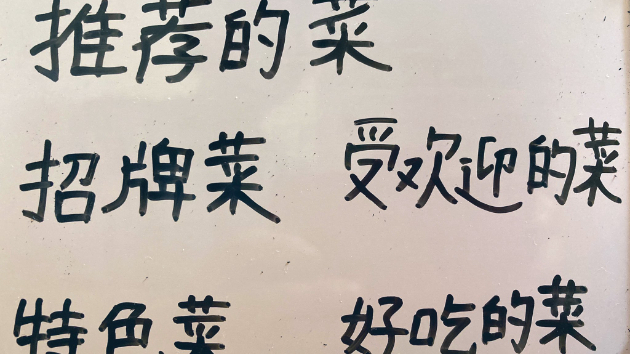 推荐的菜
招牌菜 受欢迎的菜
特色菜 好吃的菜